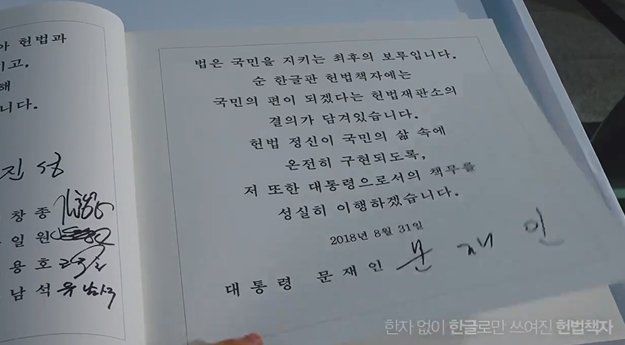 아 헌법과
기고,
해
니다.
진성
창종
일원
용호
남석 유남석
법은 국민을 지키는 최후의 보루입니다.
순 한글판 헌법책자에는
국민의 편이 되겠다는 헌법재판소의
결의가 담겨있습니다.
헌법 정신이 국민의 삶 속에
온전히 구현되도록,
저 또한 대통령으로서의 책무를
성실히 이행하겠습니다.
2018년 8월 31일
대통령 문재인 문재인
한자 없이 한글로만 쓰여진 헌법책자